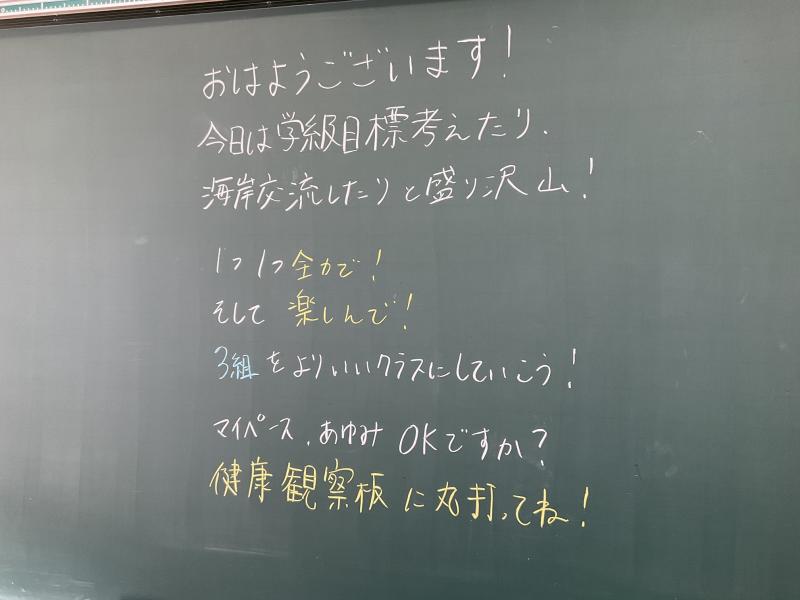 おはようございます!
今日は学級目標考えたり、
海岸交流したりと盛り沢山!
1つ1つ全力で!
そして 楽しんで!
3組をよりいいクラスにしていこう!
マイペース、あゆみ OKですか?
健康観察板に丸打ってね!